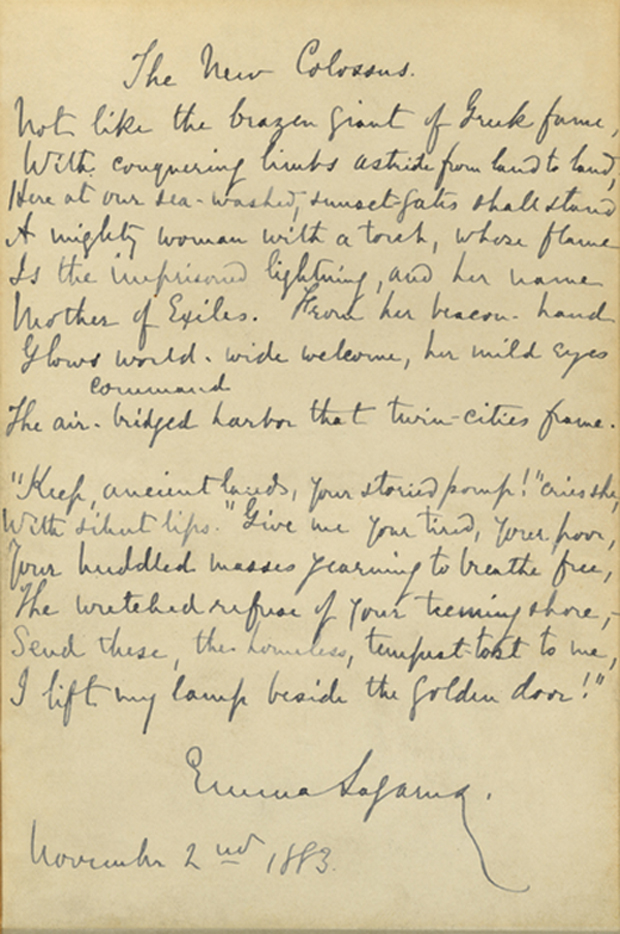 The New Colossus.
Not like the brazen giant of Greek fame,
With conquering limbs astride from land to land,
Here at our sea-washed, sunset-gates shall stand
A mighty woman with a torch, whose flame
Is the imprisoned lightning, and her name
Mother of Exiles. From her beacon-hand
Glows world-wide welcome, her mild eyes
command
The air-bridged harbor that twin-cities frame.
"Keep, ancient lands, your storied pomp!" cries she,
With silent lips. "Give me your tired, your poor,
Your huddled masses yearning to breathe free,
The wretched refuse of your teeming shore,-
Send these, the homeless, tempest-tost to me,
I lift my lamp beside the golden door!"
Emma Lazarus.
November 2nd 1883.